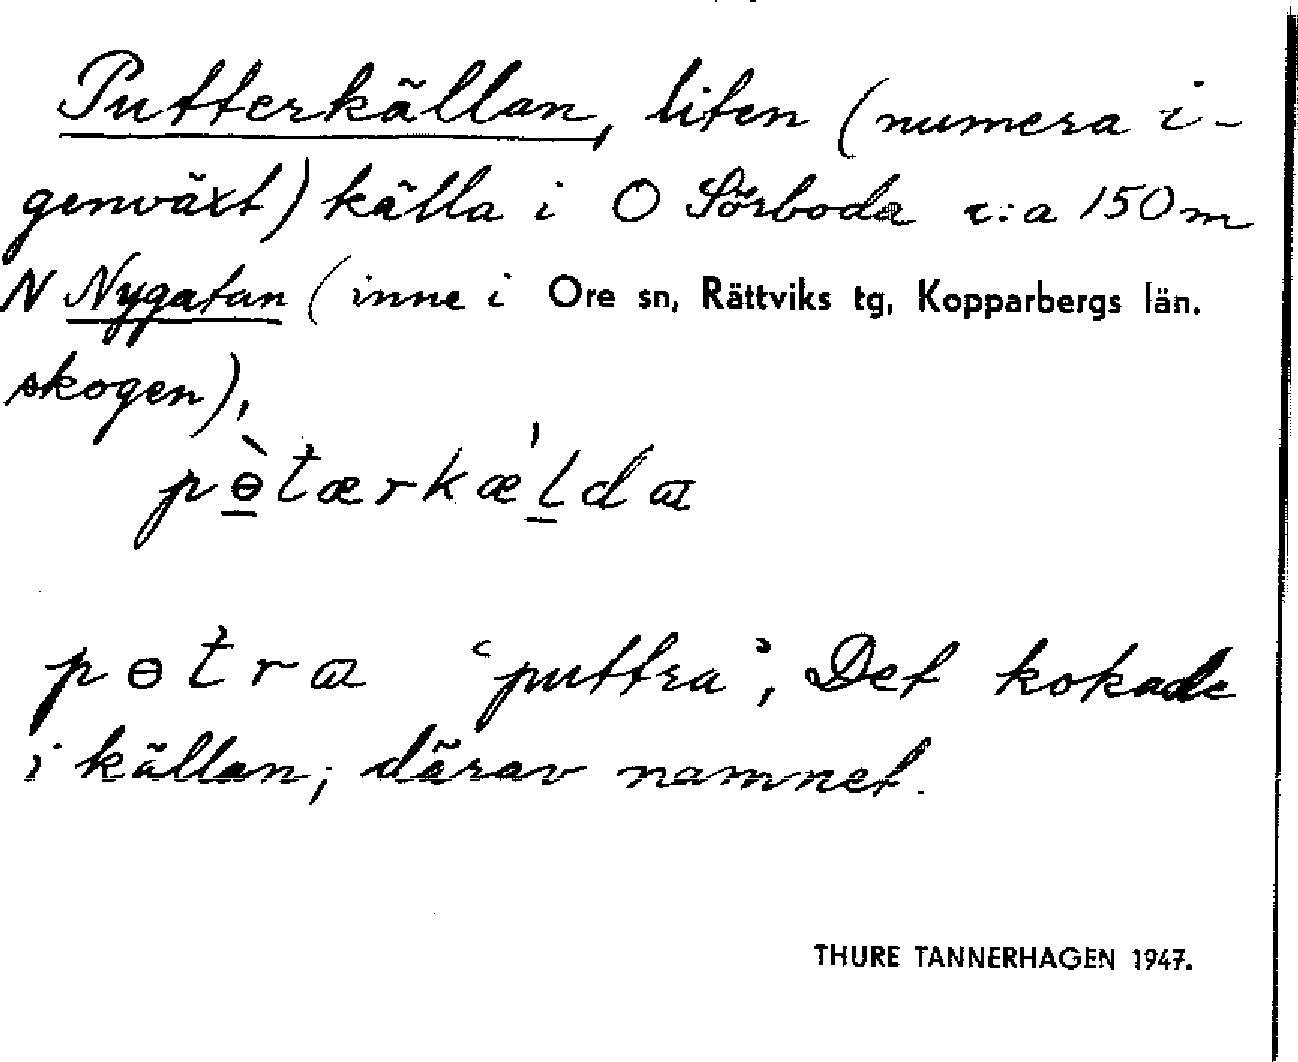 Putterkällan, liten (numera i-
genväxt) källa i O Sörboda c:a 150 m
N Nygatan (inne i Ore sn, Rättviks tg, Kopparbergs län.
skogen),
pɵ̀tærkæ'lda
pɵtra "puttra", Det kokade
i källan; därav namnet.
THURE TANNERHAGEN 1947.